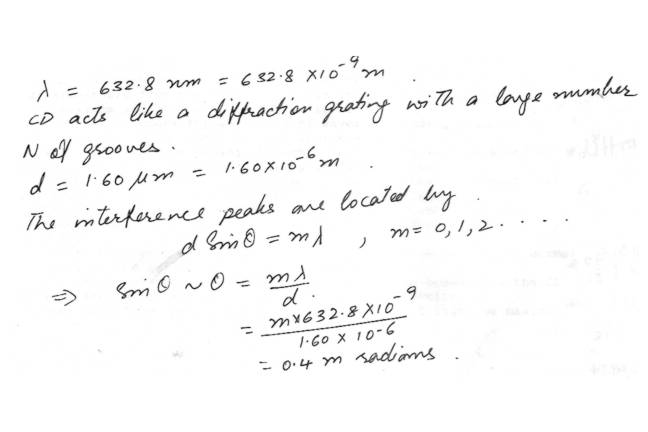 λ = 632.8 nm = 632.8 X10⁻⁹ m
CD acts like a diffraction grating with a large number
N of grooves.
d = 1.60 μm = 1.60x10⁻⁶ m.
The interference peaks are located by
d Sin θ = mλ , m = 0,1,2 . . . .
⇒ Sin θ ~ θ = mλ/d.
= mx632.8 X10⁻⁹ / 1.60 X 10-6
= 0.4 m radians.